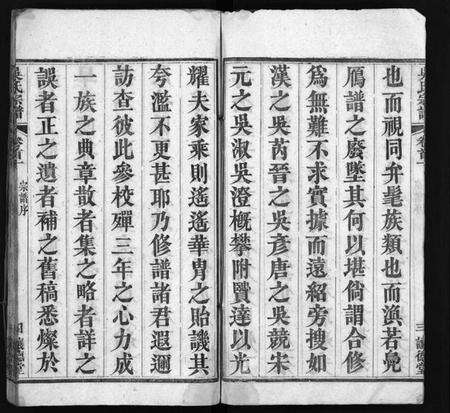 也而視同弁髦族類也而渙若鳧
鴈譜之廢墜其何以堪倘謂合修
爲無難不求實據而遠紹旁搜如
漢之吳芮晉之吳彥唐之吳兢宋
元之吳淑吳澄概攀附賢達以光
吳氏宗譜
卷首
三 讓德堂
耀夫家乘則遙遙華胄之貽譏其
夸濫不更甚耶乃修譜諸君遐邇
訪查彼此參校殫三年之心力成
一族之典章散者集之略者詳之
誤者正之遺者補之舊稿悉燦於
吳氏宗譜
卷首
宗譜序
四 讓德堂